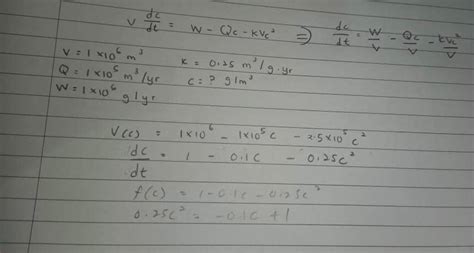 V dc/dt = W - Qc - kVc² ⇒ dc/dt = W/V - Qc/V - kVc²/V
V = 1×10⁶ m³ k = 0.25 m³/g.yr
Q = 1×10⁵ m³/yr c = ? g/m³
W = 1×10⁶ g/yr
V(c) = 1×10⁶ - 1×10⁵c - 2.5×10⁵c²
dc/dt = 1 - 0.1c - 0.25c²
f(c) = 1-0.1c-0.25c²
0.25c² = -0.1c +1